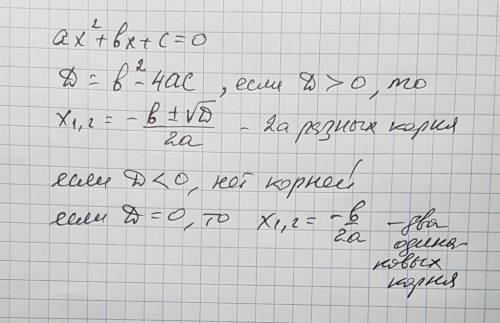 ax² + bx + c = 0
D = b² - 4ac, если D > 0, то
x₁,₂ = -b ± √D / 2a - 2а разных корня
если D < 0, нет корней!
если D = 0, то x₁,₂ = -b / 2a - два
одина-
ковых
корня